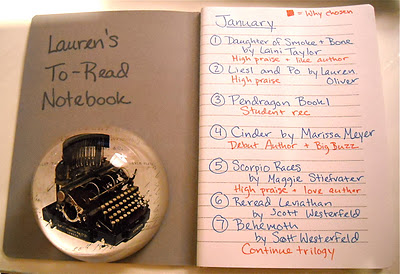 Lauren's
To-Read
Notebook
■ = Why chosen
January
① Daughter of Smoke + Bone
by Laini Taylor
High praise + like author
② Liesl and Po by Lauren
Oliver
High praise
③ Pendragon Book 1
Student rec
④ Cinder by Marissa Meyer
Debut Author + Big Buzz
⑤ Scorpio Races
by Maggie Stiefvater
High praise + love author
⑥ Reread Leviathan
by Scott Westerfeld
⑦ Behemoth
by Scott Westerfeld
Continue trilogy